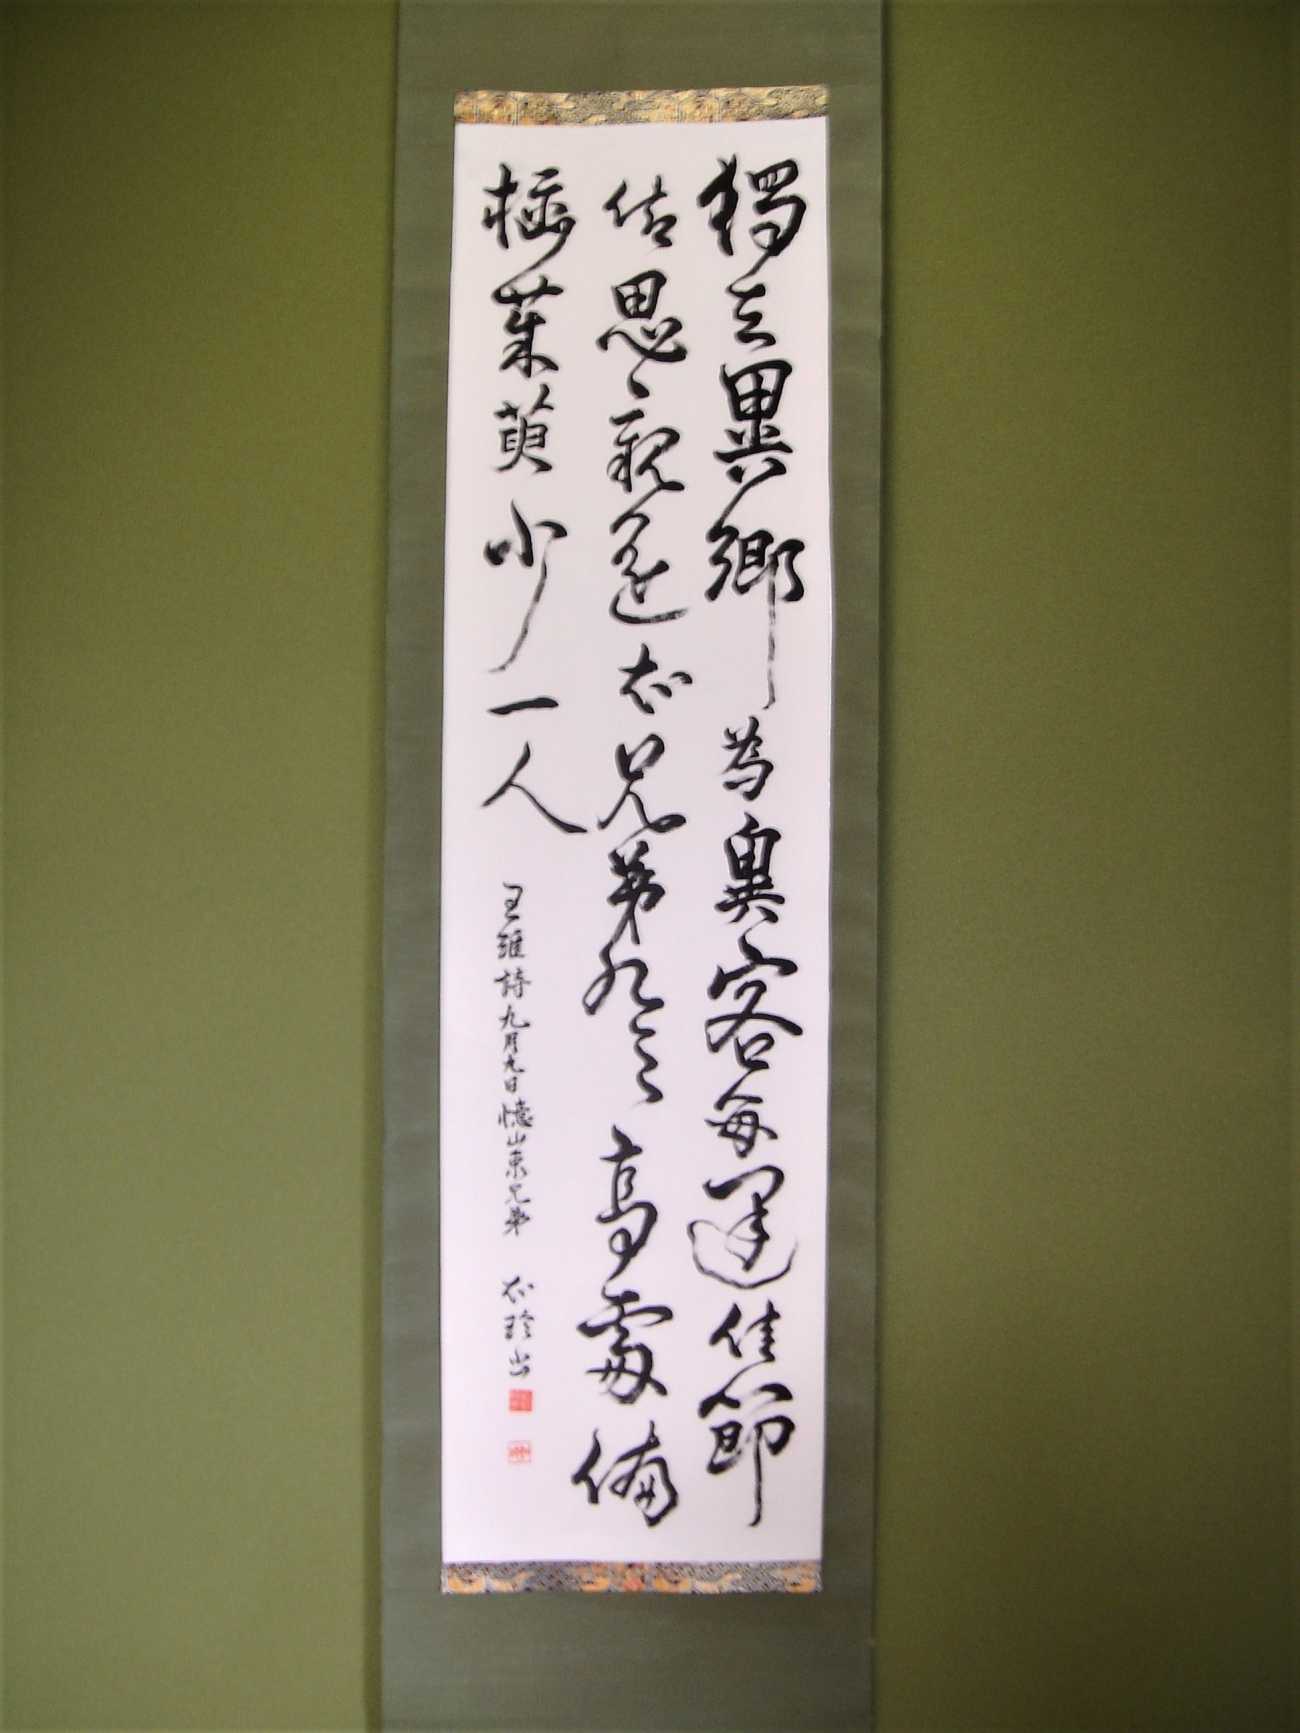 獨在異鄉為異客每逢佳節
倍思親遙知兄弟登高處徧
插茱萸少一人
王維詩九月九日憶山東兄弟